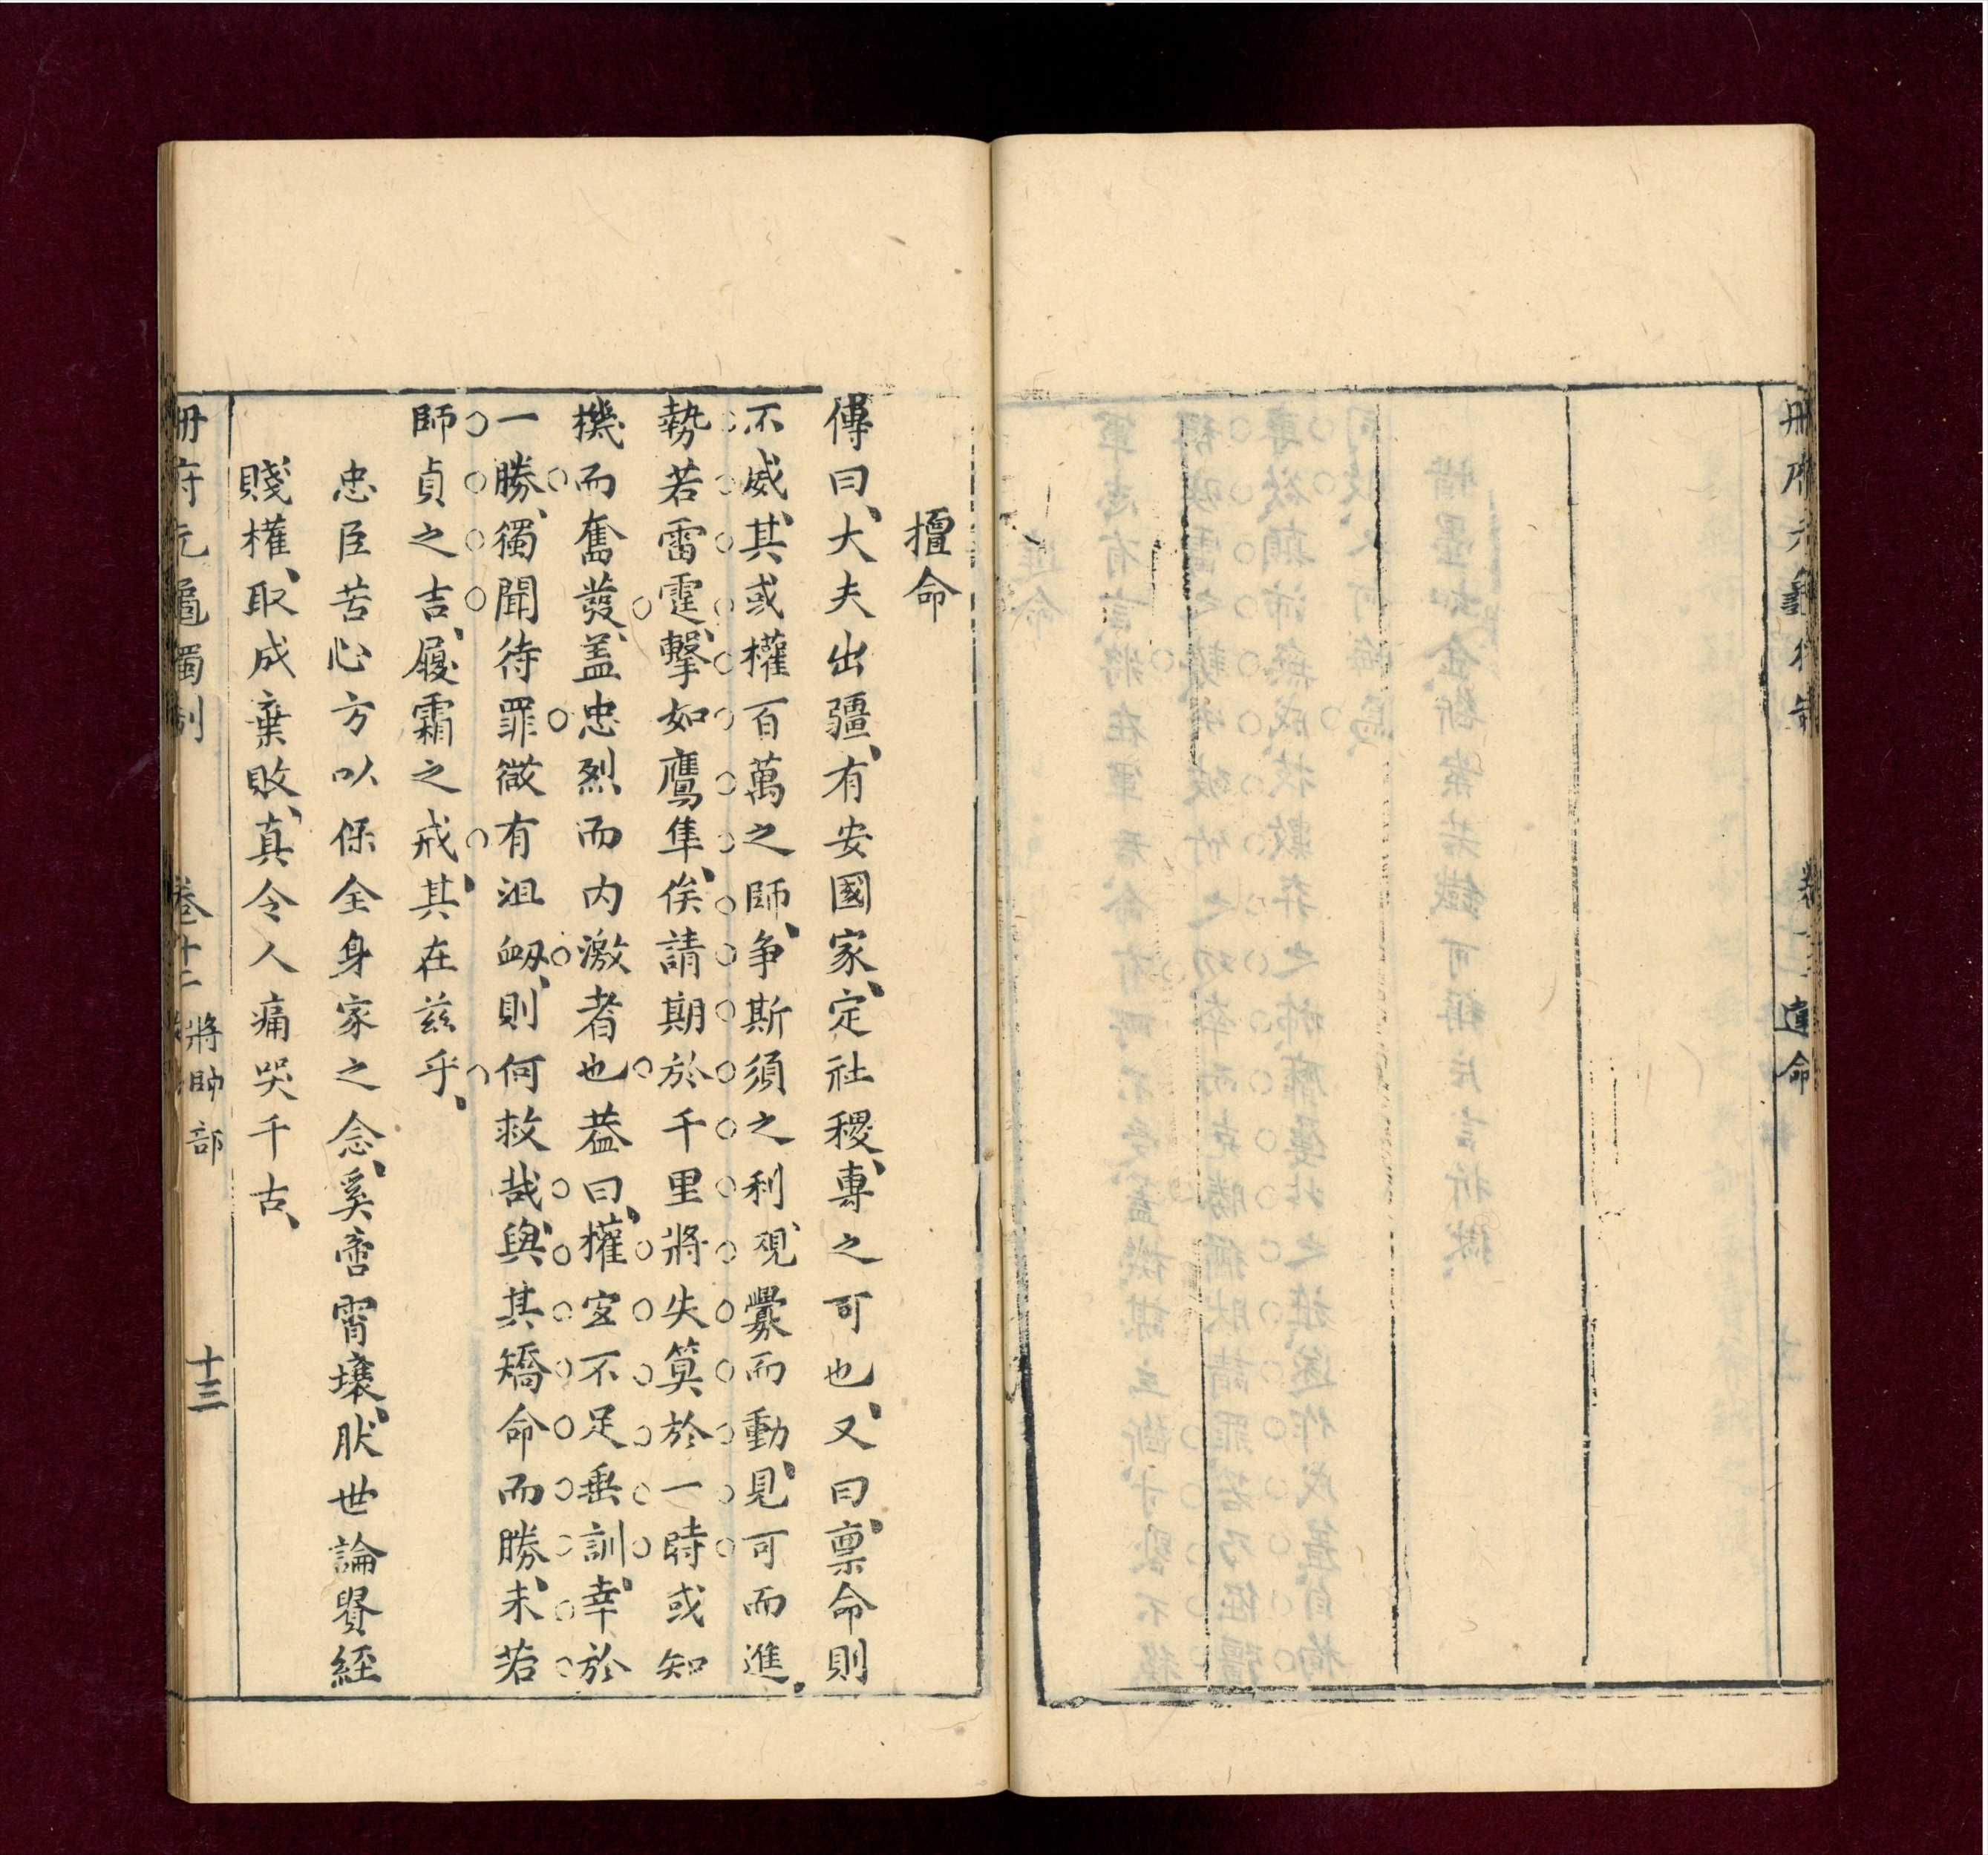 違命
擅命
傳曰、大夫出疆、有安國家、定社稷、專之可也、又曰、稟命則
不威、其或權百萬之師、争斯須之利、覌釁而動、見可而進、
勢若雷霆、擊如鷹隼、俟請期於千里、將失筭於一時、或知
機而奮發、盖忠烈而内激者也、葢曰、權宜不足垂訓、幸於
一勝、獨聞待罪、微有沮衂、則何救哉、與其矯命而勝、未若
師貞之吉、履霜之戒、其在兹乎、
忠臣苦心方以保全身家之念、奚啻霄壤、肰世論貴經
賤權、取成棄敗、真令人痛哭千古、
册府元龜獨制 卷十二 將帥部 十三